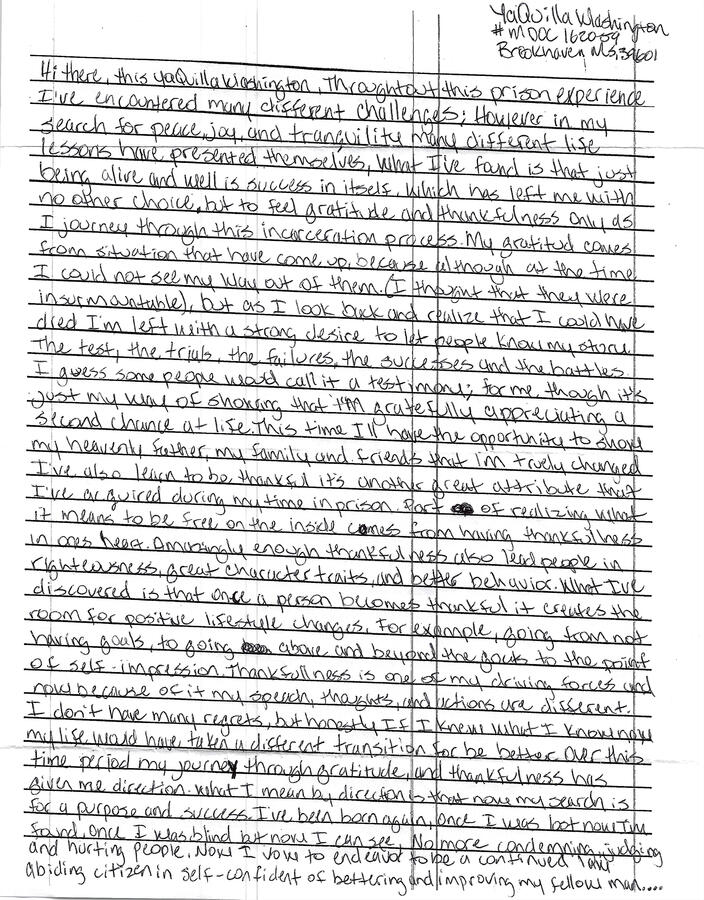 YaQuilla Washington
# MDOC 162059
Brookhaven, Ms, 39601
Hi there, this YaQuilla Washington, Throughtout this prison experience
I've encountered many different challenges; However in my
search for peace, joy, and tranquility many different life
lessons have presented themselves, What I've found is that just
being alive and well is success in itself. Which has left me with
no other choice, but to feel gratitude and thankfulness only as
I journey through this incarceration process. My gratitud comes
from situation that have come up, because although at the time
I could not see my way out of them. (I thought that they were
insurmountable), but as I look back and realize that I could have
died I'm left with a strong desire to let people know my story.
The test, the trials, the failures, the successes and the battles
I guess some people would call it a testimony; for me though it's
just my way of showing that I'm gratefully appreciating a
second chance at life. This time I'll have the opportunity to show
my heavenly father, my family and friends that I'm truely changed
I've also learn to be thankful it's another great attribute that
I've acquired during my time in prison. Part of realizing what
it means to be free on the inside comes from having thankfulness
in ones heart. Amazingly enough thankfulness also lead people in
righteousness, great character traits, and better behavior. What I've
discovered is that once a person becomes thankful it creates the
room for positive lifestyle changes. For example, going from not
having goals, to going above and beyond the goals to the point
of self-impression. Thankfullness is one of my driving forces and
now because of it my speach, thoughts, and actions are different.
I don't have many regrets, but honestly If I knew what I know now
my life would have taken a different transition for be better. Over this
time period my journey through gratitude, and thankfulness has
given me direction. What I mean by direction is that now my search is
for a purpose and success. I've been born again, Once I was lost now I'm
found, Once I was blind but now I can see, No more condemning, judging
and hurting people. Now I vow to endeavor to be a continued law
abiding citizen in self-confident of bettering and improving my fellow man....